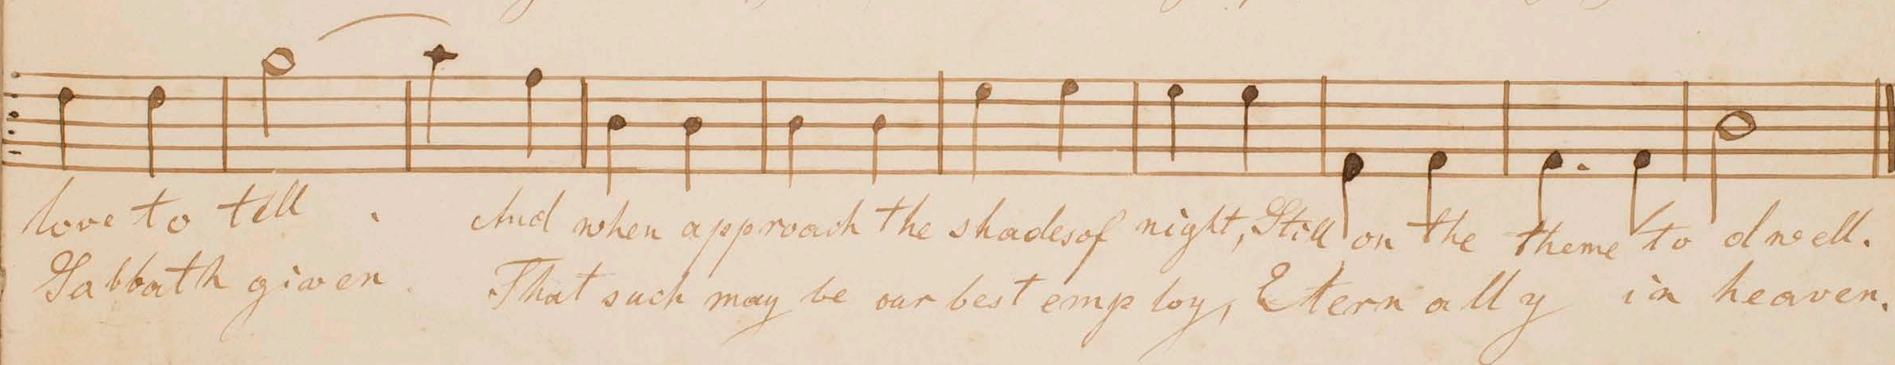 love to tell . And when approach the shades of night, Still on the theme to dwell.
Sabbath given . That such may be our best employ, Eternally in heaven.